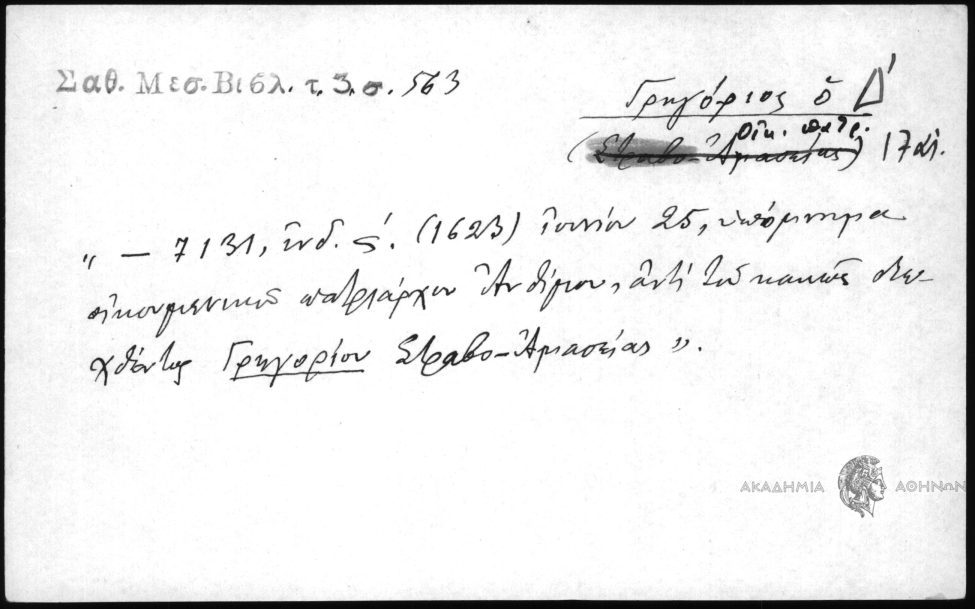 Σαθ. Μεσ. Βιβλ. τ. 3. σ. 563
Γρηγόριος ὁ Δ'
Οἰκ. πατρ.
(Στραβο-Ἀμασείας) 17 αἰ.
" — 7131, ἰνδ. ς΄. (1623) ἰουνίου 25, ὑπόμνημα
οἰκουμενικοῦ πατριάρχου Ἀνθίμου, ἀντὶ τοῦ κακῶς
χθέντος Γρηγορίου Στραβο-Ἀμασείας ".
ΑΚΑΔΗΜΙΑ ΑΘΗΝΩΝ